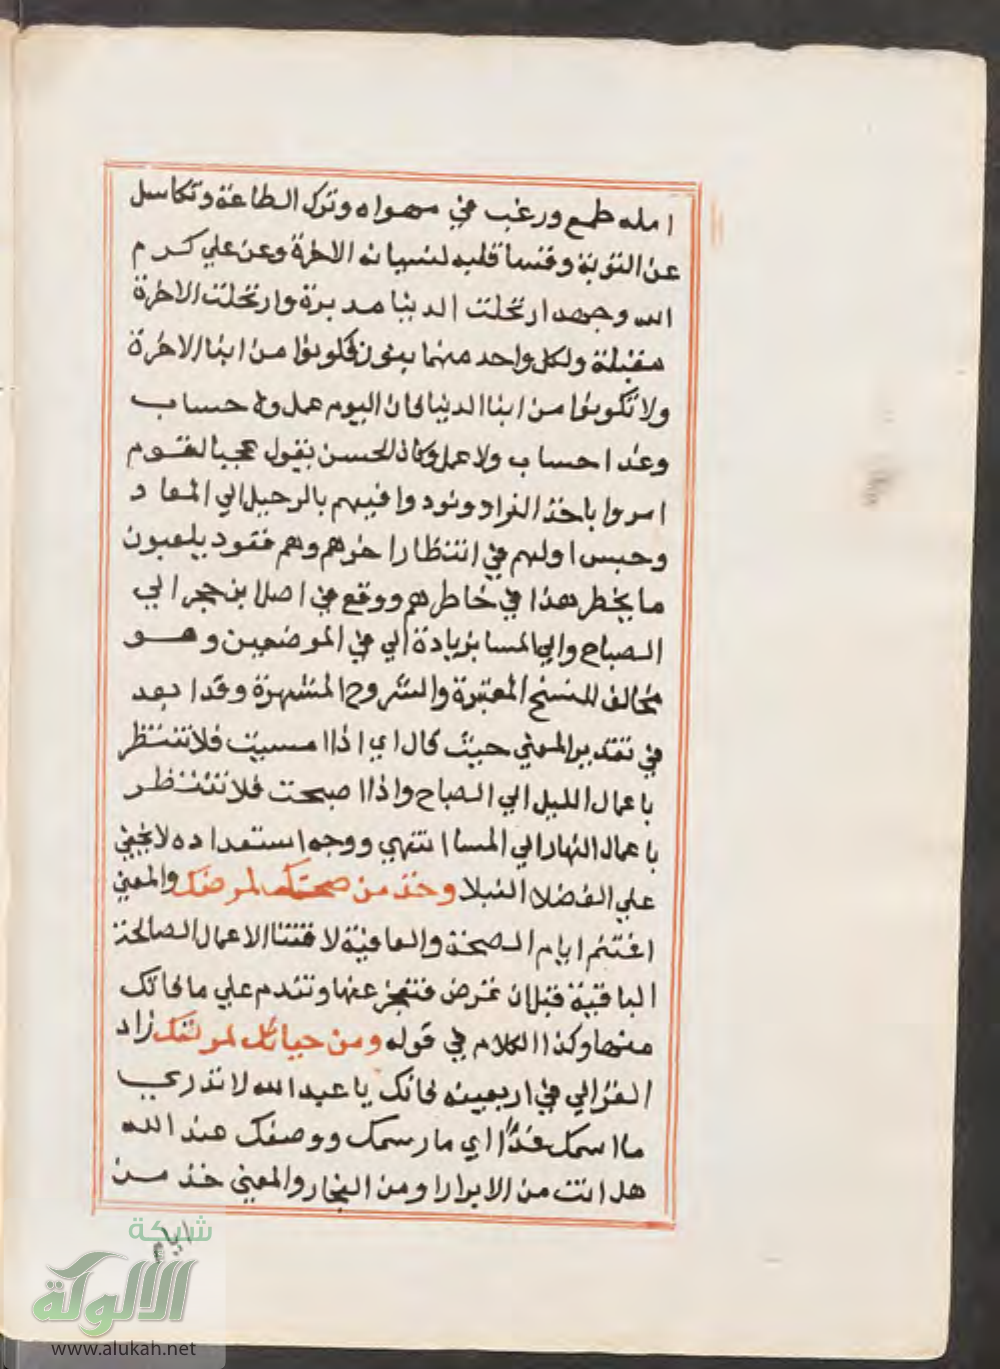 امله طمع ورغب في هواه وترك الطاعة وتكاسل
عن التوبة وقسا قلبه لنسيانه الاخرة وعن علي كرم
الله وجهه ارتحلت الدنيا مدبرة وارتحلت الاخرة
مقبلة ولكل واحد منهما بنون فكونوا من ابنا الاخرة
ولا تكونوا من ابنا الدنيا فان اليوم عمل ولا حساب
وغدا حساب ولا عمل وكان الحسن يقول عجبا لقوم
امروا باخذ الزاد ونودوا فيهم بالرحيل الي المعاد
وحبس اولهم في انتظار اخرهم وهم قعود يلعبون
ما يخطر هذا في خاطرهم ووقع في اصل ابن حجر الي
الصباح والي المسا بزيادة الي في الموضعين وهو
مخالف للنسخ المعتبرة والشروح المشهرة وقد ابعد
في تقدير المعني حيث قال اي اذا امسيت فلا تنتظر
باعمال الليل الي الصباح واذا اصبحت فلا تنتظر
باعمال النهار الي المسا انتهي ووجه استعداده لا يخفي
علي الفضلا النبلا وخذ من صحتك لمرضك والمعني
اغتنم ايام الصحة والعافية لاقتنا الاعمال الصالحة
الباقية قبل ان تمرض فتعجز عنها وتندم علي ما فاتك
منها وكذا الكلام في قوله ومن حياتك لموتك زاد
الغزالي في اربعينه فانك يا عبد الله لا تدري
ما اسمك غدًا اي ما رسمك ووصفك عند الله
هل انت من الابرار او من الفجار والمعني خذ من
ايام
شبكة
الألوكة
www.alukah.net